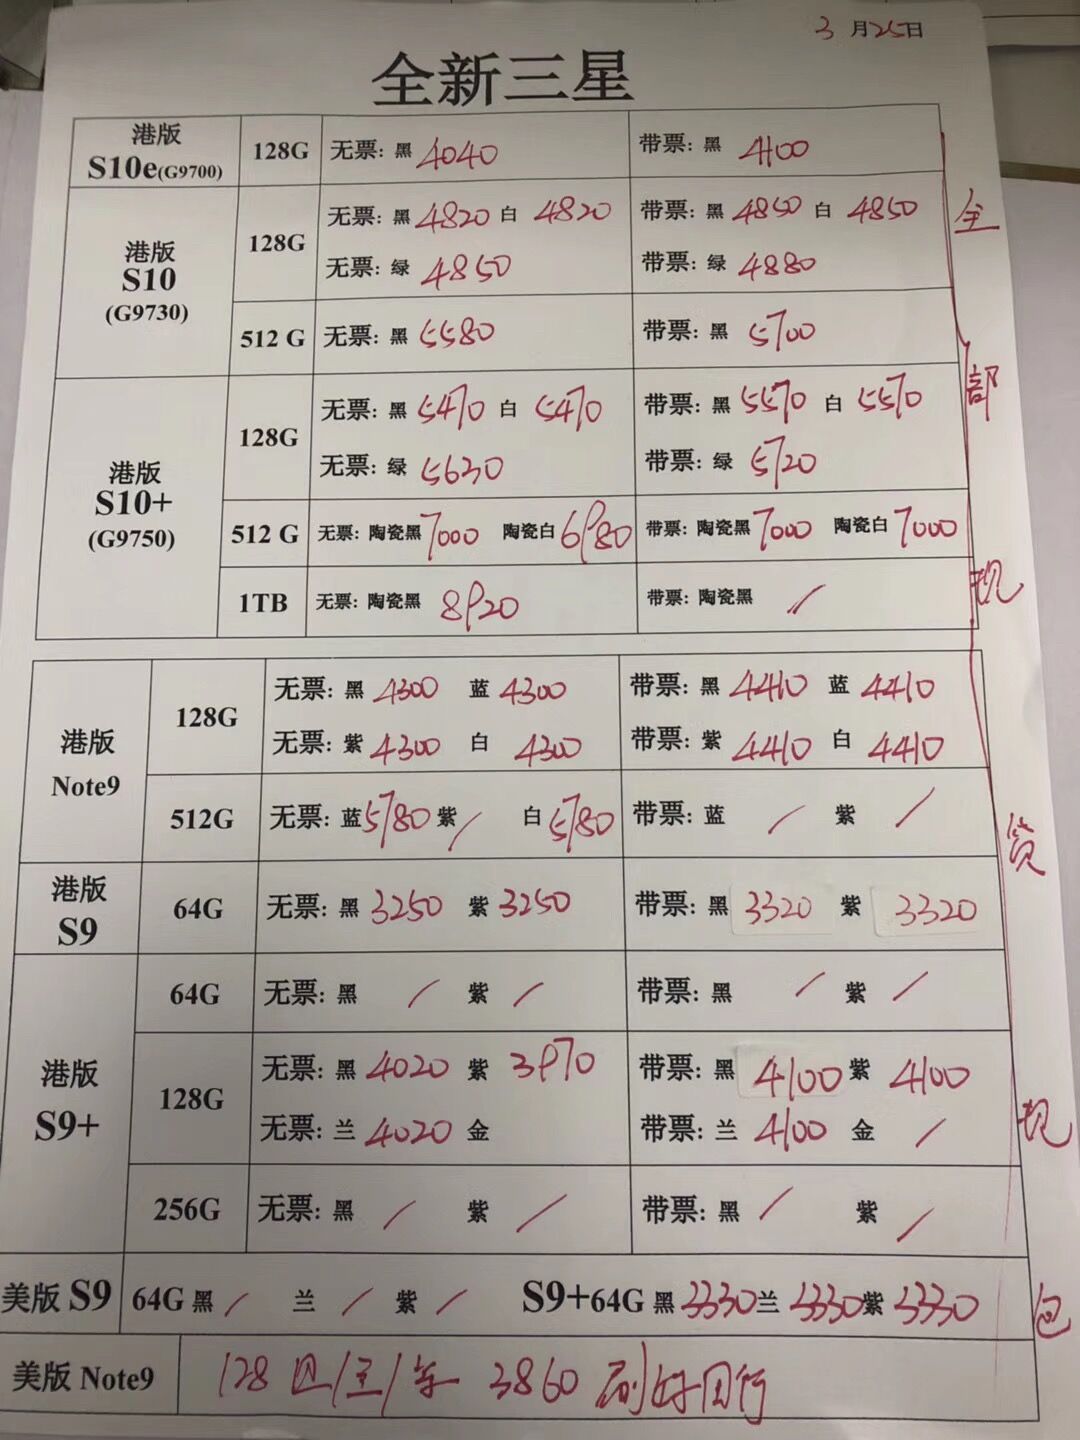 3月25日
全新三星
港版
S10e(G9700)
128G
无票: 黑 4040
带票: 黑 4100
港版
S10
(G9730)
128G
无票: 黑 4820 白 4820
带票: 黑 4850 白 4850
无票: 绿 4850
带票: 绿 4880
512 G
无票: 黑 5580
带票: 黑 5700
港版
S10+
(G9750)
128G
无票: 黑 5470 白 5470
带票: 黑 5570 白 5570
无票: 绿 5630
带票: 绿 5720
512 G
无票: 陶瓷黑 7000 陶瓷白 6980
带票: 陶瓷黑 7000 陶瓷白 7000
1TB
无票: 陶瓷黑 8920
带票: 陶瓷黑 /
港版
Note9
128G
无票: 黑 4300 蓝 4300
带票: 黑 4410 蓝 4410
无票: 紫 4300 白 4300
带票: 紫 4410 白 4410
512G
无票: 蓝 5780 紫 / 白 5780
带票: 蓝 / 紫 /
港版
S9
64G
无票: 黑 3250 紫 3250
带票: 黑 3320 紫 3320
港版
S9+
64G
无票: 黑 / 紫 /
带票: 黑 / 紫 /
128G
无票: 黑 4020 紫 3970
带票: 黑 4100 紫 4100
无票: 兰 4020 金
带票: 兰 4100 金 /
256G
无票: 黑 / 紫 /
带票: 黑 / 紫 /
美版 S9
64G 黑 / 兰 / 紫 / S9+64G 黑 3330 兰 3330 紫 3330
美版 Note9
128 / / 3860 刷好国行
全部现货现包